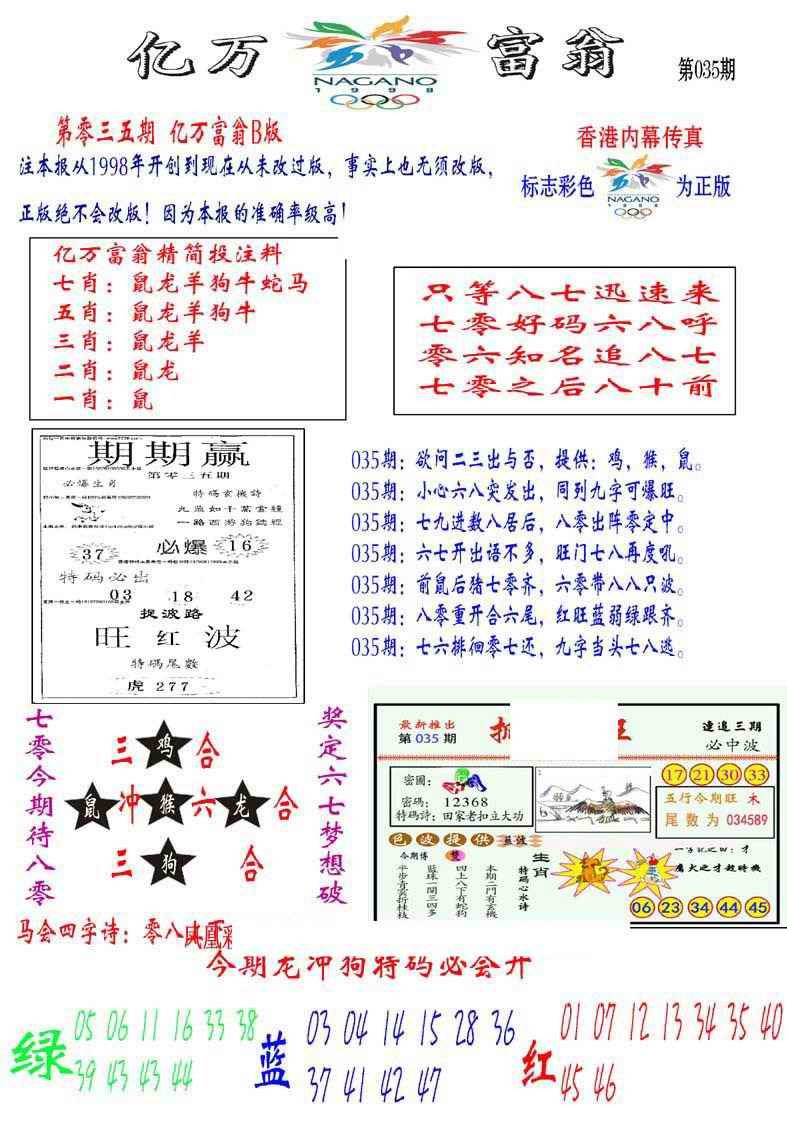 亿万
NAGANO
1998
富翁
第035期
第零三五期 亿万富翁B版
注本报从1998年开创到现在从未改过版，事实上也无须改版，
正版绝不会改版！因为本报的准确率级高！
香港内幕传真
标志彩色
NAGANO
1998
为正版
亿万富翁精简投注料
七肖：鼠龙羊狗牛蛇马
五肖：鼠龙羊狗牛
三肖：鼠龙羊
二肖：鼠龙
一肖：鼠
只等八七迅速来
七零好码六八呼
零六知名追八七
七零之后八十前
期期赢
第零三五期
必爆生肖
特码玄機詩
九五如千葉當經
一路西游狗鏈經
37
必爆
16
特码必出
03 18 42
捉波路
旺红波
特码尾数
虎277
035期：欲问二三出与否，提供：鸡，猴，鼠。
035期：小心六八突发出，同到九字可爆旺。
035期：七九进数八居后，八零出阵零定中。
035期：六七开出语不多，旺门七八再度吼。
035期：前鼠后猪七零齐，六零带八八只波。
035期：八零重开合六尾，红旺蓝弱绿跟齐。
035期：七六排徊零七还，九字当头七八逃。
七零今期待八零
三鸡合
鼠冲猴六龙合
三狗合
奖定六七梦想破
最新推出
第035期
速追三期
必中波
密圖：
密碼：12368
特碼詩：田家老扣立大功
17 21 30 33
五行今期旺 木
尾数为 034589
色波提供
今期博
雙
半步青雲折桂枝
藍珠一開三四多
四上八下有蛇狗
本期二門有玄機
特码心水诗
生肖
鷹犬之才趁時機
06 23 34 44 45
马会四字诗：零八
今期龙冲狗特码必会开
绿
05 06 11 16 33 38
39 43 43 44
蓝
03 04 14 15 28 36
37 41 42 47
红
01 07 12 13 34 35 40
45 46